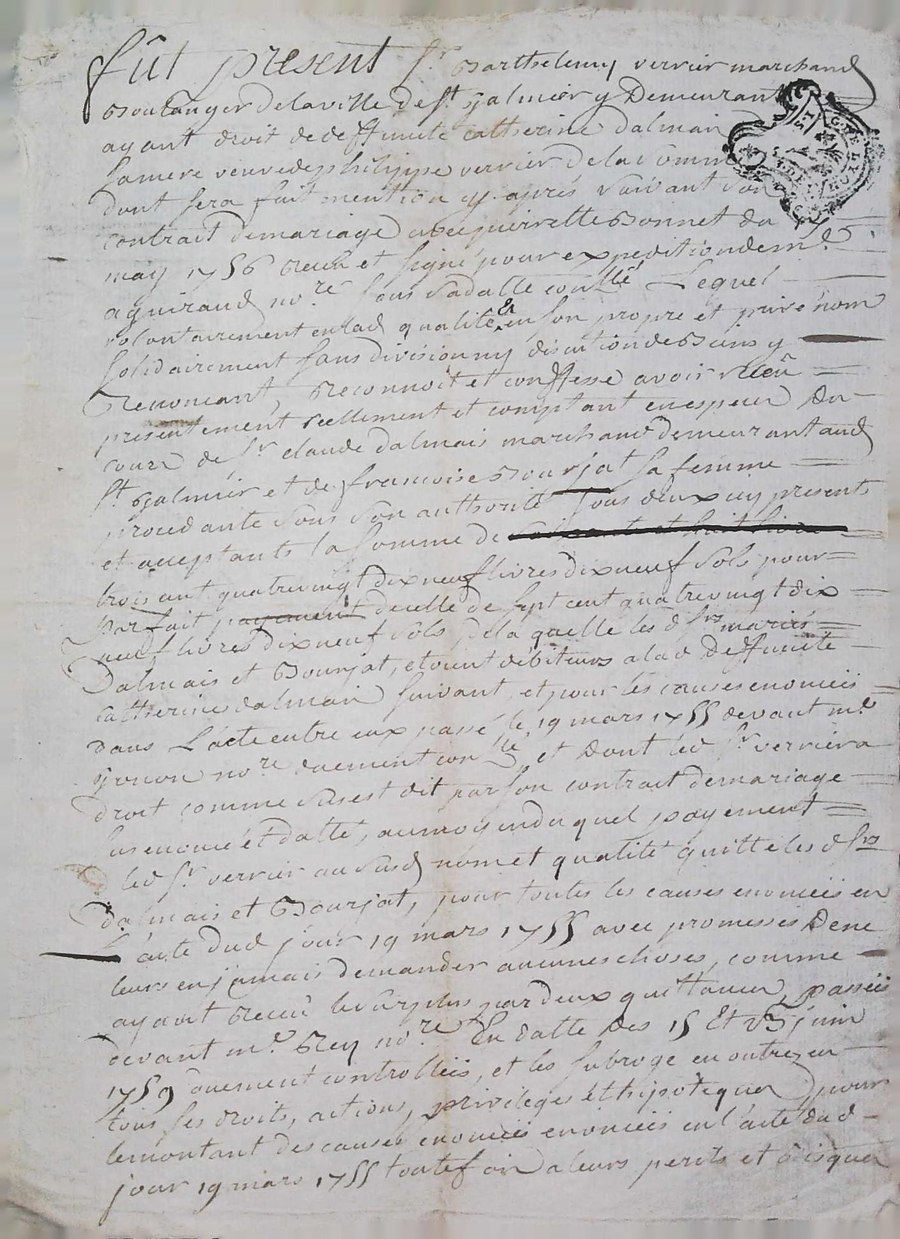 fût présent Sr. Barthelemy verrier marchand
Boulanger de la ville de st galmier y Demeurant
ayant droit de deffunte catherine dalmais
La mere veuve de philippe verrier de la somme
dont sera fait mention cy après suivant son
contrait de mariage avec pierrette Bonnet du
may 1756 receu et signé pour expedition de me.
aguiraud nore. sous sa datte conllé Lequel
volontairement en lad qualité & en son propre et privé nom
solidairement sans division ny discution de Biens y
Renonçant, Reconnoit et confesse avoir reçû
presentement réellement et comptant en especes Du
cours de Sr claude dalmais marchand demeurant aud
st galmier et de francoise Bourjat sa femme
procedante sous son authorité tous deux icy presents
et acceptants la somme de
trois cent quatre vingt dix neuf livres dix neuf sols pour
parfait payement de celle de sept cent quatre vingt dix
neuf livres dix neuf sols de la quelle les d srs mariés
Dalmais et Bourjat, etoient débiteurs a lad Deffunte
catherine dalmais suivant, et pour les causes enoncées
dans L'acte entre eux passé le 19 mars 1755 devant me
nore. duement conlle, et Dont led Sr. verrier a
droit comme sus est dit par son contrait de mariage
sus enoncé et datté, au moyen du quel payement
led Sr. verrier au susd nom et qualité quitte les d srs
dalmais et Bourjat, pour toutes les causes enoncées en
L'acte dud jour 19 mars 1755 avec promesses De ne
leurs en jamais demander aucunes choses, comme
ayant receu le surplus par deux quittances, passées
devant me. Rey nore En datte des 15 Et 23 juin
1759 duement controllées, et les subroge en outre, en
tous ses droits, actions, privileges et hipoteques, pour
le montant des causes enoncées enoncées en l'acte dud
jour 19 mars 1755 toutefois a leurs perils et risques